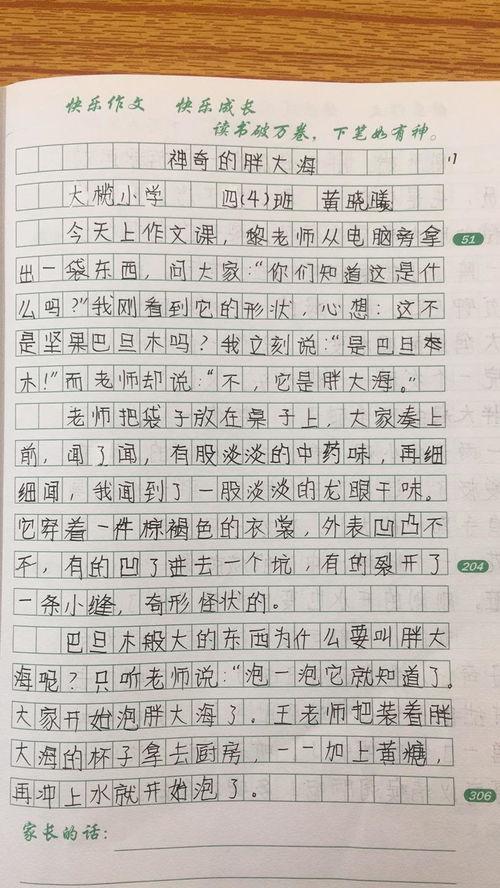 快乐作文 快乐成长
读书破万卷，下笔如有神。
神奇的胖大海
大榄小学 四(4)班 黄晓曦
今天上作文课，黎老师从电脑旁拿
51
出一袋东西，问大家：“你们知道这是什
么吗？”我刚看到它的形状，心想：这不
是坚果巴旦木吗？我立刻说：“是巴旦
木！”而老师却说：“不，它是胖大海。”
老师把袋子放在桌子上，大家凑上
前，闻了闻，有股淡淡的中药味，再细
细闻，我闻到了一股淡淡的龙眼干味。
它穿着一件棕褐色的衣裳，外表凹凸不
不，有的凹了进去一个坑，有的裂开了
204
一条小缝，奇形怪状的。
巴旦木般大的东西为什么要叫胖大
海呢？只听老师说：“泡一泡它就知道了。
大家开始泡胖大海了。王老师把装着胖
大海的杯子拿去厨房，一一加上黄糖，
再冲上水就开始泡了。
306
家长的话：